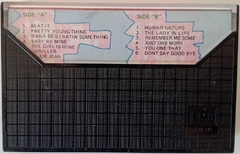 SIDE "A"
1 BEAT IT
2 PRETTY YOUNG THING
3 WANA BE STRATIN SOMETHING
4 BABY BE MINE
5 THE GIRL IS MINE
THRILLER
JEAN
SIDE "B"
1 HUMAN NATURE
2 THE LADY IN LIFE
3 REMEMBER ME SOME
4 JUST ONE MORE
5 YOU ONE THAT
6 DONT SAY GOOD BYE